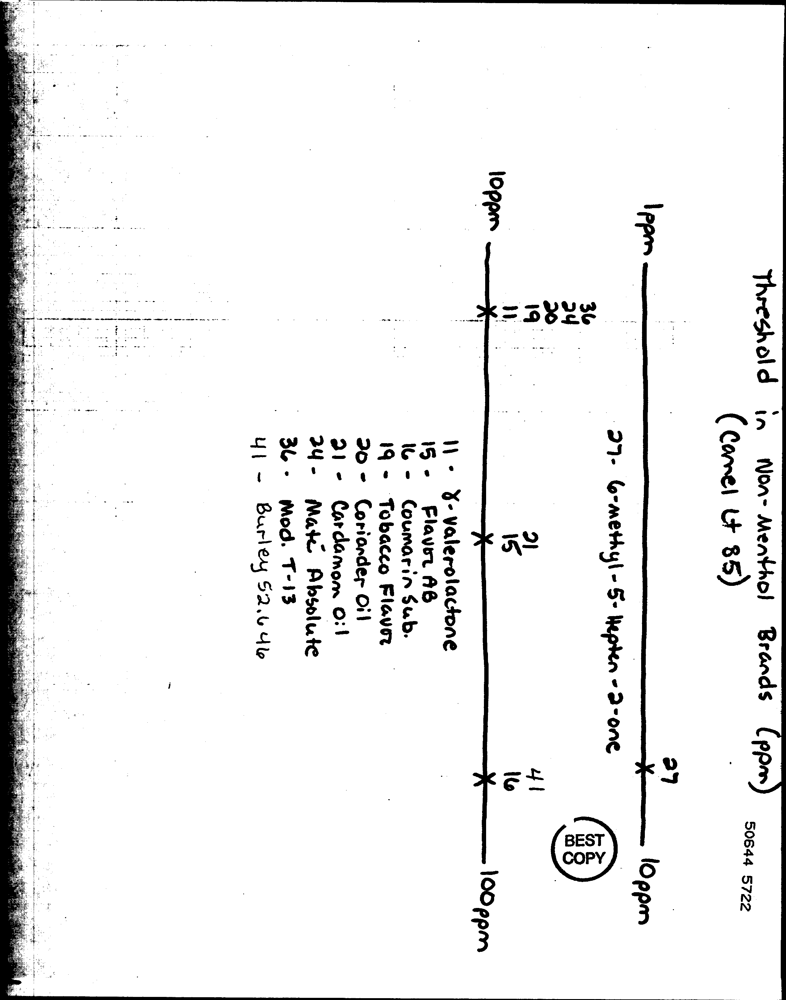 Threshold in Non-Menthol Brands (ppm)
(Camel Lt 85)
50644 5722
27
1ppm
10ppm
27- 6-methyl-5-Hepten-2-one
BEST
COPY
36
24
20
19
11
21
15
41
16
10ppm
100ppm
11 - γ-valerolactone
15 - Flavor AB
16 - Coumarin Sub.
19 - Tobacco Flavor
20 - Coriander Oil
21 - Cardamom Oil
24 - Maté Absolute
36 - Mod. T-13
41 - Burley 52.646